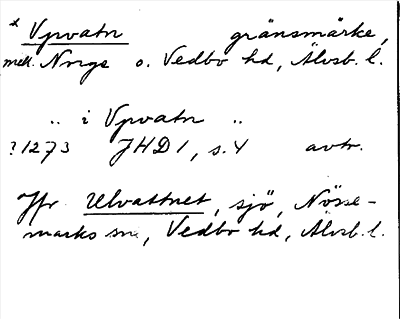 * Vpvatn gränsmärke,
mell. Norge o. Vedbo hd, Älvsb. l.
„ i Vpvatn „
? 1273 JHD 1, s. 4 avtr.
Jfr Ulvattnet, sjö, Nösse-
marks sn, Vedbo hd, Älvsb. l.